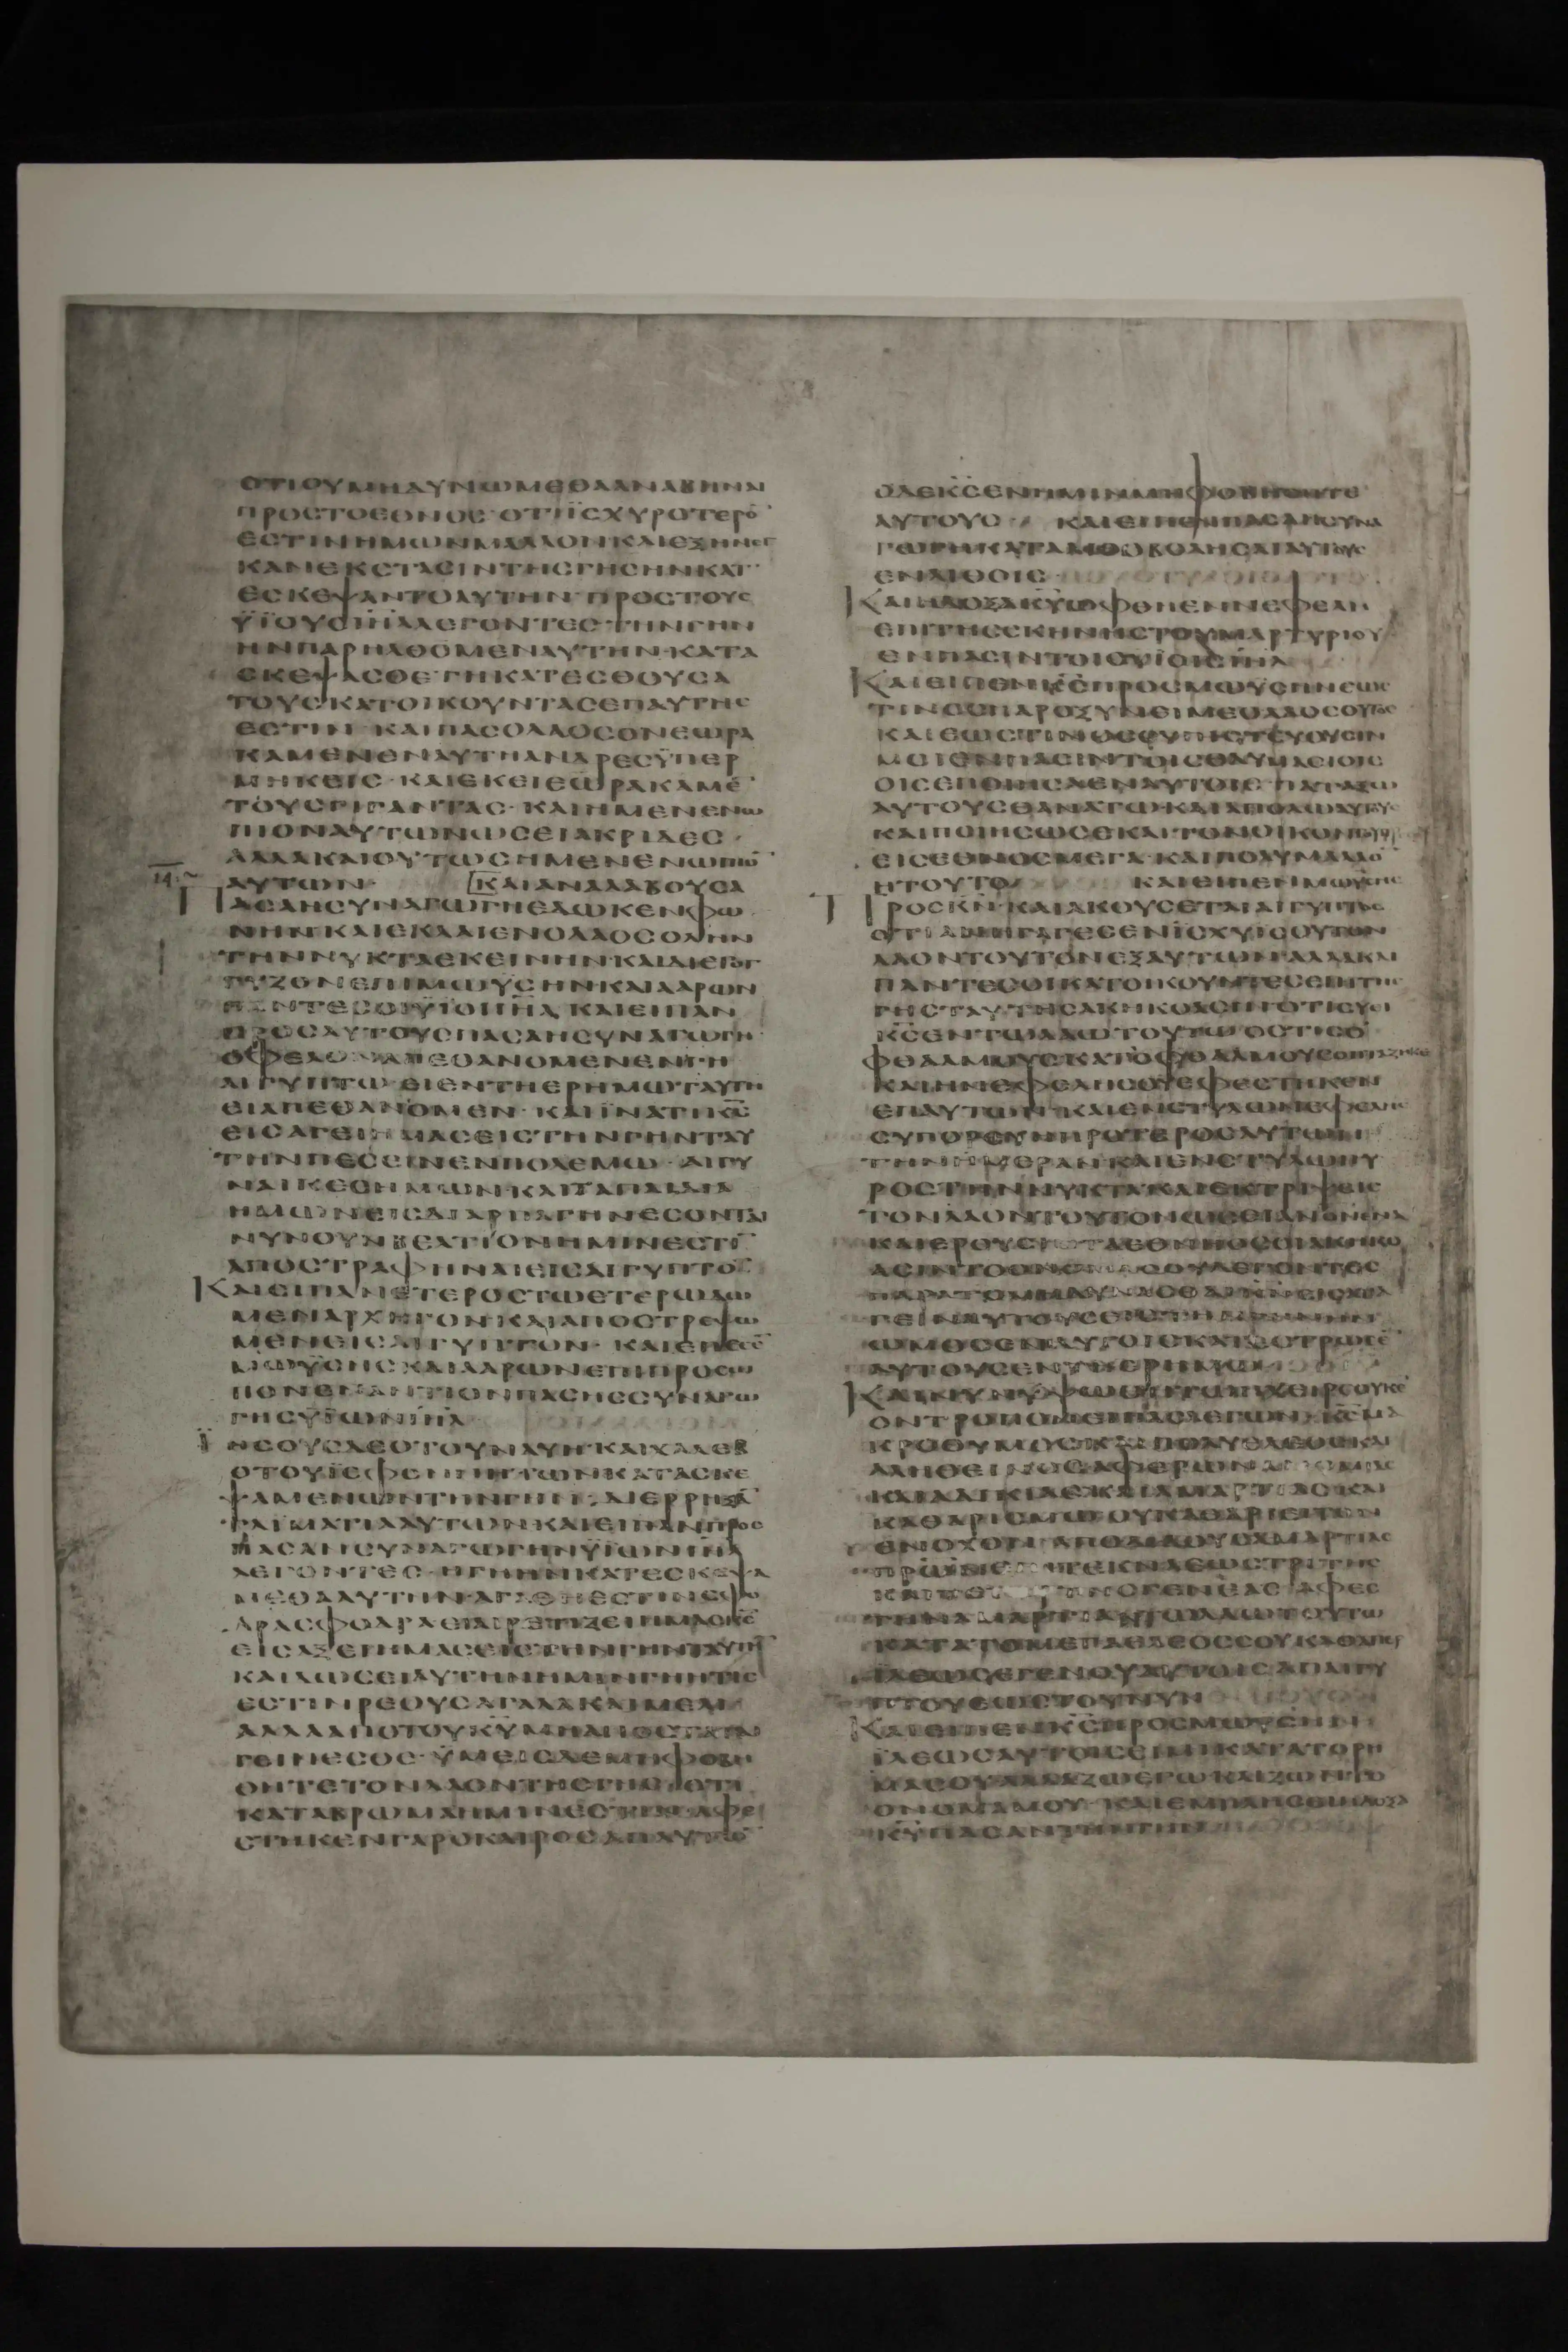 ΟΤΙΟΥΜΗΔΥΝΩΜΕΘΑΑΝΑΒΗΝΑΙ
ΠΡΟΣΤΟΕΘΝΟΣ·ΟΤΙΪΣΧΥΡΟΤΕΡΟ¯
ΕΣΤΙΝΗΜΩΝΜΑΛΛΟΝΚΑΙΕΞΗΝΕΓ
ΚΑΝΕΚΣΤΑΣΙΝΤΗΣΓΗΣΗΝΚΑΤ
ΕΣΚΕΨΑΝΤΟΑΥΤΗΝ·ΠΡΟΣΤΟΥΣ
ΫΪΟΥΣΙΗΛΛΕΓΟΝΤΕΣ·ΤΗΝΓΗΝ
ΗΝΠΑΡΗΛΘΟΜΕΝΑΥΤΗΝ·ΚΑΤΑ
ΣΚΕΨΑΣΘΕΓΗΚΑΤΕΣΘΟΥΣΑ
ΤΟΥΣΚΑΤΟΙΚΟΥΝΤΑΣΕΠΑΥΤΗΣ
ΕΣΤΙΝ·ΚΑΙΠΑΣΟΛΑΟΣΟΝΕΩΡΑ
ΚΑΜΕΝΕΝΑΥΤΗΑΝΔΡΕΣΫΠΕΡ
ΜΗΚΕΙΣ·ΚΑΙΕΚΕΙΕΩΡΑΚΑΜΕ¯
ΤΟΥΣΓΙΓΑΝΤΑΣ·ΚΑΙΗΜΕΝΕΝΩ
ΠΙΟΝΑΥΤΩΝΩΣΕΙΑΚΡΙΔΕΣ·
ΑΛΛΑΚΑΙΟΥΤΩΣΗΜΕΝΕΝΩΠΙΟ¯
14 ΑΥΤΩΝ· ΚΑΙΑΝΑΛΑΒΟΥΣΑ
ΠΑΣΑΗΣΥΝΑΓΩΓΗΕΔΩΚΕΝΦΩ
ΝΗΝ·ΚΑΙΕΚΛΑΙΕΝΟΛΑΟΣΟΛΗΝ
ΤΗΝΝΥΚΤΑΕΚΕΙΝΗΝ·ΚΑΙΔΙΕΓΟΓ
ΓΥΖΟΝΕΠΙΜΩΫΣΗΝΚΑΙΑΑΡΩΝ
ΠΑΝΤΕΣΟΙΫΪΟΙΙΗΛ·ΚΑΙΕΙΠΑΝ
ΠΡΟΣΑΥΤΟΥΣΠΑΣΑΗΣΥΝΑΓΩΓΗ·
ΟΦΕΛΟΝΑΠΕΘΑΝΟΜΕΝΕΝΓΗ
ΑΙΓΥΠΤΩ·ΕΙΕΝΤΗΕΡΗΜΩΤΑΥΤΗ
ΕΙΑΠΕΘΑΝΟΜΕΝ·ΚΑΙΪΝΑΤΙΚΣ
ΕΙΣΑΓΕΙΗΜΑΣΕΙΣΤΗΝΓΗΝΤΑΥ
ΤΗΝΠΕΣΕΙΝΕΝΠΟΛΕΜΩ·ΑΙΓΥ
ΝΑΙΚΕΣΗΜΩΝΚΑΙΤΑΠΑΙΔΙΑ
ΗΜΩΝΕΙΣΔΙΑΡΠΑΓΗΝΕΣΟΝΤΑΙ
ΝΥΝΟΥΝΒΕΛΤΙΟΝΗΜΙΝΕΣΤΙ¯
ΑΠΟΣΤΡΑΦΗΝΑΙΕΙΣΑΙΓΥΠΤΟ¯
ΚΑΙΕΙΠΑΝΕΤΕΡΟΣΤΩΕΤΕΡΩΔΩ
ΜΕΝΑΡΧΗΓΟΝ·ΚΑΙΑΠΟΣΤΡΕΨΩ
ΜΕΝΕΙΣΑΙΓΥΠΤΟΝ·ΚΑΙΕΠΕΣΕ¯
ΜΩΫΣΗΣΚΑΙΑΑΡΩΝΕΠΙΠΡΟΣΩ
ΠΟΝΕΝΑΝΤΙΟΝΠΑΣΗΣΣΥΝΑΓΩ
ΓΗΣΫΪΩΝΙΗΛ
ΪΗΣΟΥΣΔΕΟΤΟΥΝΑΥΗ·ΚΑΙΧΑΛΕΒ
ΟΤΟΥΪΕΦΟΝΝΗΤΩΝΚΑΤΑΣΚΕ
ΨΑΜΕΝΩΝΤΗΝΓΗΝ·ΔΙΕΡΡΗΞΑ¯
ΤΑΙΜΑΤΙΑΑΥΤΩΝ·ΚΑΙΕΙΠΑΝΠΡΟΣ
ΠΑΣΑΝΣΥΝΑΓΩΓΗΝΫΪΩΝΙΗΛ
ΛΕΓΟΝΤΕΣ·ΗΓΗΗΝΚΑΤΕΣΚΕΨΑ
ΜΕΘΑΑΥΤΗΝ·ΑΓΑΘΗΕΣΤΙΝΣΦΟ
ΔΡΑΣΦΟΔΡΑ·ΕΙΑΙΡΕΤΙΖΕΙΗΜΑΣΚΣ
ΕΙΣΑΞΕΙΗΜΑΣΕΙΣΤΗΝΓΗΝΤΑΥΤΗ¯
ΚΑΙΔΩΣΕΙΑΥΤΗΝΗΜΙΝ·ΓΗΗΤΙΣ
ΕΣΤΙΝΡΕΟΥΣΑΓΑΛΑΚΑΙΜΕΛΙ·
ΑΛΛΑΑΠΟΤΟΥΚΥΜΗΑΠΟΣΤΑΤΑΙ
ΓΕΙΝΕΣΘΕ·ΫΜΕΙΣΔΕΜΗΦΟΒΗ
ΘΗΤΕΤΟΝΛΑΟΝΤΗΣΓΗΣ·ΟΤΙ
ΚΑΤΑΒΡΩΜΑΗΜΙΝΕΣΤΙΝ·ΑΦΕ
ΣΤΗΚΕΝΓΑΡΟΚΑΙΡΟΣΑΠΑΥΤΩ¯
ΟΔΕΚΣΕΝΗΜΙΝΜΗΦΟΒΗΘΗΤΕ
ΑΥΤΟΥΣ· ΚΑΙΕΙΠΕΝΠΑΣΑΗΣΥΝΑ
ΓΩΓΗΚΑΤΑΛΙΘΟΒΟΛΗΣΑΙΑΥΤΟΥΣ
ΕΝΛΙΘΟΙΣ
ΚΑΙΗΔΟΞΑΚΥΩΦΘΗΕΝΝΕΦΕΛΗ
ΕΠΙΤΗΣΣΚΗΝΗΣΤΟΥΜΑΡΤΥΡΙΟΥ
ΕΝΠΑΣΙΝΤΟΙΣΫΪΟΙΣΙΗΛ
ΚΑΙΕΙΠΕΝΚΣΠΡΟΣΜΩΫΣΗΝΕΩΣ
ΤΙΝΟΣΠΑΡΟΞΥΝΕΙΜΕΟΛΑΟΣΟΥΤΟΣ
ΚΑΙΕΩΣΤΙΝΟΣΟΥΠΙΣΤΕΥΟΥΣΙΝ
ΜΟΙΕΝΠΑΣΙΝΤΟΙΣΘΑΥΜΑΣΙΟΙΣ
ΟΙΣΕΠΟΙΗΣΑΕΝΑΥΤΟΙΣ·ΠΑΤΑΞΩ
ΑΥΤΟΥΣΘΑΝΑΤΩΚΑΙΑΠΟΛΩΑΥΤΟΥΣ
ΚΑΙΠΟΙΗΣΩΣΕΚΑΙΤΟΝΟΙΚΟΝ
ΕΙΣΕΘΝΟΣΜΕΓΑ·ΚΑΙΠΟΛΥΜΑΛΛΟ¯
ΗΤΟΥΤΟ ΚΑΙΕΙΠΕΝΜΩΫΣΗΣ
ΠΡΟΣΚΝ·ΚΑΙΑΚΟΥΣΕΤΑΙΑΙΓΥΠΤΟΣ
ΟΤΙΑΝΗΓΑΓΕΣΕΝΪΣΧΥΙΣΟΥΤΟΝ
ΛΑΟΝΤΟΥΤΟΝΕΞΑΥΤΩΝ·ΑΛΛΑΚΑΙ
ΠΑΝΤΕΣΟΙΚΑΤΟΙΚΟΥΝΤΕΣΕΠΙΤΗΣ
ΓΗΣΤΑΥΤΗΣΑΚΗΚΟΑΣΙΝΟΤΙΣΥΕΙ
ΚΣΕΝΤΩΛΑΩΤΟΥΤΩ·ΟΣΤΙΣΟ
ΦΘΑΛΜΟΥΣΚΑΤΟΦΘΑΛΜΟΥΣΟΠΤΑΖΗΚΕ
ΚΑΙΗΝΕΦΕΛΗΣΟΥΕΦΕΣΤΗΚΕΝ
ΕΠΑΥΤΩΝ·ΚΑΙΕΝΣΤΥΛΩΝΕΦΕΛΗΣ
ΣΥΠΟΡΕΥΗΠΡΟΤΕΡΟΣΑΥΤΩΝ
ΤΗΝΗΜΕΡΑΝ·ΚΑΙΕΝΣΤΥΛΩΠΥ
ΡΟΣΤΗΝΝΥΚΤΑ·ΚΑΙΕΚΤΡΙΨΕΙΣ
ΤΟΝΛΑΟΝΤΟΥΤΟΝΩΣΕΙΑΝΘΝΕΝΑ
ΚΑΙΕΡΟΥΣΙΝΤΑΕΘΝΗΟΣΟΙΑΚΗΚΟ
ΑΣΙΝΤΟΟΝΟΜΑΣΟΥΛΕΓΟΝΤΕΣ
ΠΑΡΑΤΟΜΗΔΥΝΑΣΘΑΙΚΝΕΙΣΑΓΑ
ΓΕΙΝΑΥΤΟΥΣΕΙΣΤΗΝΓΗΝΗΝ
ΩΜΟΣΕΝΑΥΤΟΙΣΚΑΤΕΣΤΡΩΣΕ¯
ΑΥΤΟΥΣΕΝΤΗΕΡΗΜΩ
ΚΑΙΝΥΝΥΨΩΘΗΤΩΗΧΕΙΡΣΟΥΚΕ
ΟΝΤΡΟΠΟΝΕΙΠΑΣΛΕΓΩΝ·ΚΣΜΑ
ΚΡΟΘΥΜΟΣΚΑΙΠΟΛΥΕΛΕΟΣΚΑΙ
ΑΛΗΘΕΙΝΟΣΑΦΕΡΩΝΑΝΟΜΙΑΣ
ΚΑΙΑΔΙΚΙΑΣΚΑΙΑΜΑΡΤΙΑΣΚΑΙ
ΚΑΘΑΡΙΣΜΩΟΥΚΑΘΑΡΙΕΙΤΟΝ
ΕΝΟΧΟΝ·ΑΠΟΔΙΔΟΥΣΑΜΑΡΤΙΑΣ
ΠΡΩΝΕΠΙΤΕΚΝΑΕΩΣΤΡΙΤΗΣ
ΚΑΙΤΕΤΑΡΤΗΣΓΕΝΕΑΣ·ΑΦΕΣ
ΤΗΝΑΜΑΡΤΙΑΝΤΩΛΑΩΤΟΥΤΩ
ΚΑΤΑΤΟΜΕΓΑΕΛΕΟΣΣΟΥΚΑΘΑΠΕΡ
ΪΛΕΩΣΕΓΕΝΟΥΑΥΤΟΙΣΑΠΑΙΓΥ
ΠΤΟΥΕΩΣΤΟΥΝΥΝ
ΚΑΙΕΙΠΕΝΚΣΠΡΟΣΜΩΫΣΗΝ
ΪΛΕΩΣΑΥΤΟΙΣΕΙΜΙΚΑΤΑΤΟΡΗ
ΜΑΣΟΥ·ΑΛΛΑΖΩΕΓΩΚΑΙΖΩΝΤΟ
ΟΝΟΜΑΜΟΥ·ΚΑΙΕΜΠΛΗΣΕΙΗΔΟΞΑ
ΚΥΠΑΣΑΝΤΗΝΓΗΝ